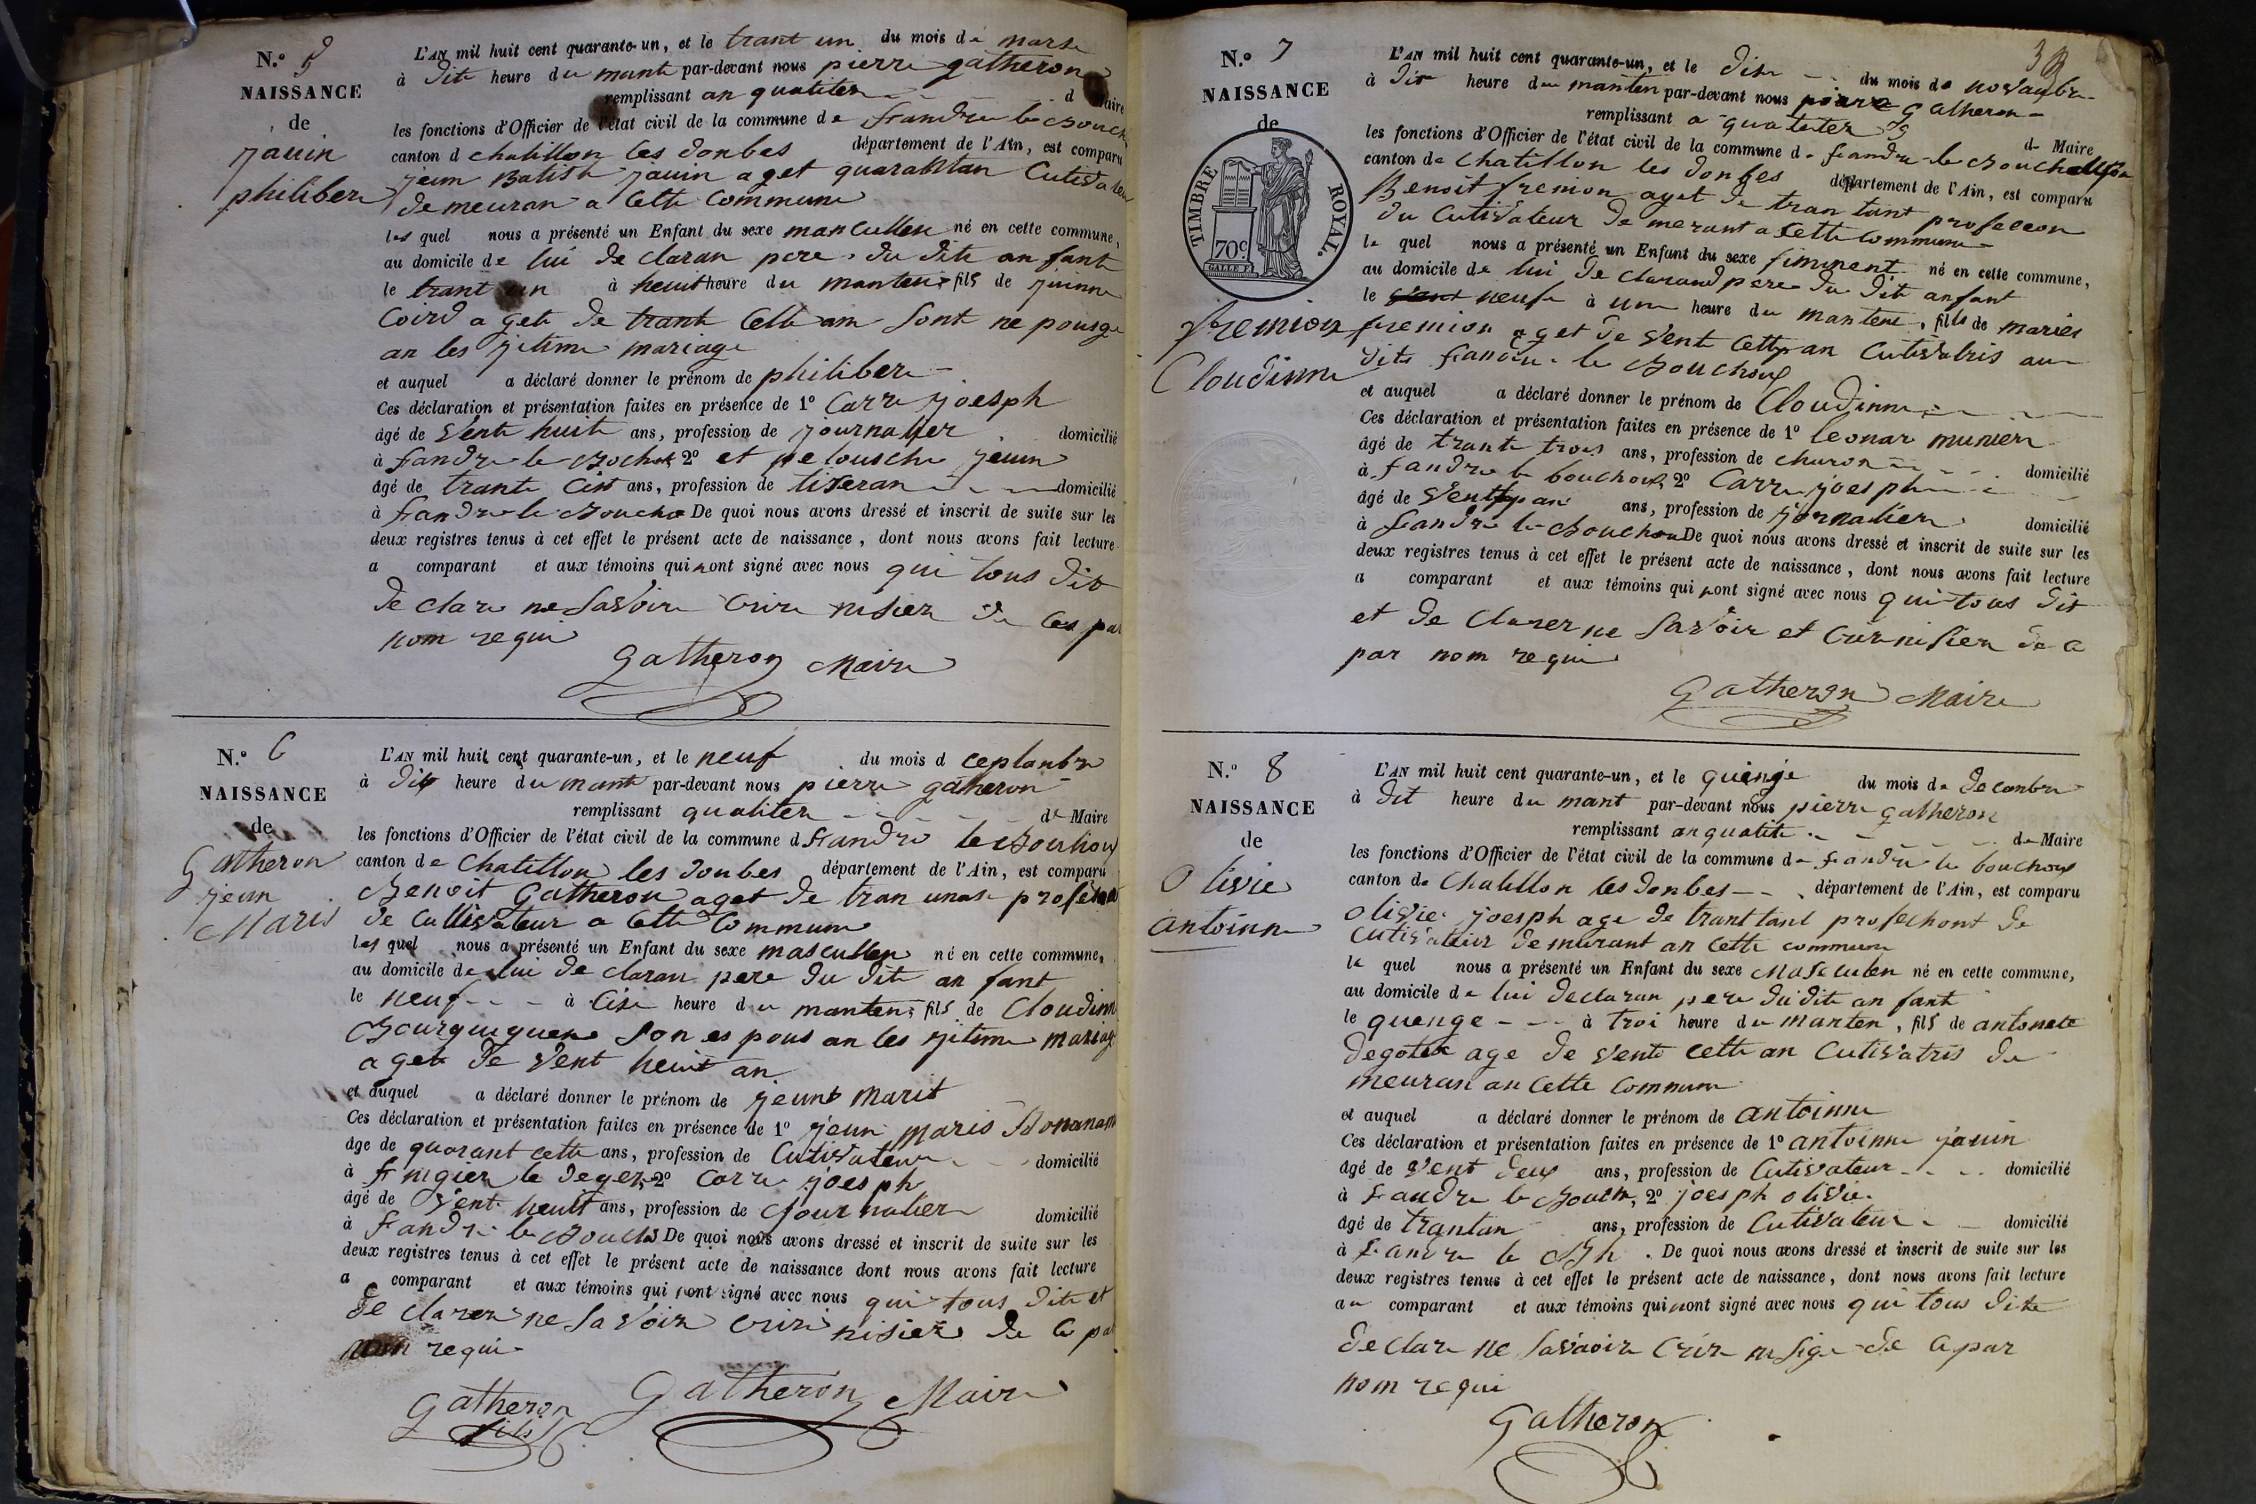 N.o 5
NAISSANCE
de
jauin
philiber
L'AN mil huit cent quarante-un, et le trant un du mois de mars
à dite heure du mante par-devant nous pierre gatheron
remplissant an qualiter d Maire
les fonctions d'Officier de l'état civil de la commune de
canton d chatillon les donbes département de l'Ain, est comparu
jeun Batist jauin aget quarantan
demeuran a cette commune
les quel nous a présenté un Enfant du sexe mancullen né en cette commune,
au domicile de lui de claran pere du dite an fant
le trant un à heuit heure du manten fils de
a gete de trant cette an sont ne pousge
an les jetime mariage
et auquel a déclaré donner le prénom de philiber
Ces déclaration et présentation faites en présence de 1o Carre joesph
âgé de vente huit ans, profession de journalier domicilié
à 2o et jeun
âgé de trante ans, profession de tiseran domicilié
à De quoi nous avons dressé et inscrit de suite sur les
deux registres tenus à cet effet le présent acte de naissance, dont nous avons fait lecture
a comparant et aux témoins qui nont signé avec nous qui tous dit
de clare ne savoir crire nisier de
nom requi
Gatheron Maire
N.o 6
NAISSANCE
de
Gatheron
jeun
Maris
L'AN mil huit cent quarante-un, et le neuf du mois d ceptanbre
à dix heure du mante par-devant nous pierre gatheron
remplissant qualiter de Maire
les fonctions d'Officier de l'état civil de la commune d
canton de chatillon les donbes département de l'Ain, est comparu
Benoit Gatheron aget de tran
de cullivateur a cette commune
les quel nous a présenté un Enfant du sexe mascullen né en cette commune,
au domicile de lui de claran pere du dite an fant
le neuf à heure du manten fils de Cloudinn
son es pous an les jitime mariage
aget de vent heuit an
et auquel a déclaré donner le prénom de jeunt Marit
Ces déclaration et présentation faites en présence de 1o jeun maris
âgé de quarant cette ans, profession de Cutivateur domicilié
à 2o Carre joesph
âgé de vent heuit ans, profession de journalier domicilié
à De quoi nous avons dressé et inscrit de suite sur les
deux registres tenus à cet effet le présent acte de naissance dont nous avons fait lecture
a comparant et aux témoins qui nont signé avec nous qui tous dite et
de clarer ne savoir crire nisier de
nom requi
Gatheron fils Gatheron Maire
38
N.o 7
NAISSANCE
de
TIMBRE ROYAL.
70c
Fremion
Cloudinne
L'AN mil huit cent quarante-un, et le dise du mois de novanbre
à dix heure du manten par-devant nous pierre gatheron
remplissant a qualiter de Maire
les fonctions d'Officier de l'état civil de la commune de
canton de chatillon les donbes département de l'Ain, est comparu
Benoit fremion aget de tran tant profession
du cutivateur de merant a cette commune
le quel nous a présenté un Enfant du sexe fiminent né en cette commune,
au domicile de lui de clarand pere du dite anfant
le neufe à une heure du manten, fille de maries
fremion aget de vent cette an cutivatris au
dite
et auquel a déclaré donner le prénom de Cloudinne
Ces déclaration et présentation faites en présence de 1o leonar munier
âgé de trante trois ans, profession de charon domicilié
à 2o Carre joesph
âgé de ans, profession de jornalier domicilié
à De quoi nous avons dressé et inscrit de suite sur les
deux registres tenus à cet effet le présent acte de naissance, dont nous avons fait lecture
a comparant et aux témoins qui nont signé avec nous qui tous dit
et de clarer ne savoir et de a
par nom requi
Gatheron Maire
N.o 8
NAISSANCE
de
Olivie
antoinne
L'AN mil huit cent quarante-un, et le quinge du mois de decenbre
à dit heure du mant par-devant nous pierre gatheron
remplissant an qualite de Maire
les fonctions d'Officier de l'état civil de la commune de
canton de Chatillon les donbes département de l'Ain, est comparu
olivie joesph age de trant tant profechont de
cutivateur demurant an cette commune
le quel nous a présenté un Enfant du sexe masculen né en cette commune,
au domicile de lui declaran pere du dite an fant
le quenge à troi heure du manten, fils de antonete
degotex age de vente cette an cutivatris de
meuran an cette commune
et auquel a déclaré donner le prénom de antoinne
Ces déclaration et présentation faites en présence de 1o antoinne jauin
âgé de vent deux ans, profession de Cutivateur domicilié
à 2o joesph olivie
âgé de trantan ans, profession de Cutivateur domicilié
à De quoi nous avons dressé et inscrit de suite sur les
deux registres tenus à cet effet le présent acte de naissance, dont nous avons fait lecture
au comparant et aux témoins qui nont signé avec nous qui tous dite
declare ne savaoir crire nisige de a par
nom requi
Gatheron